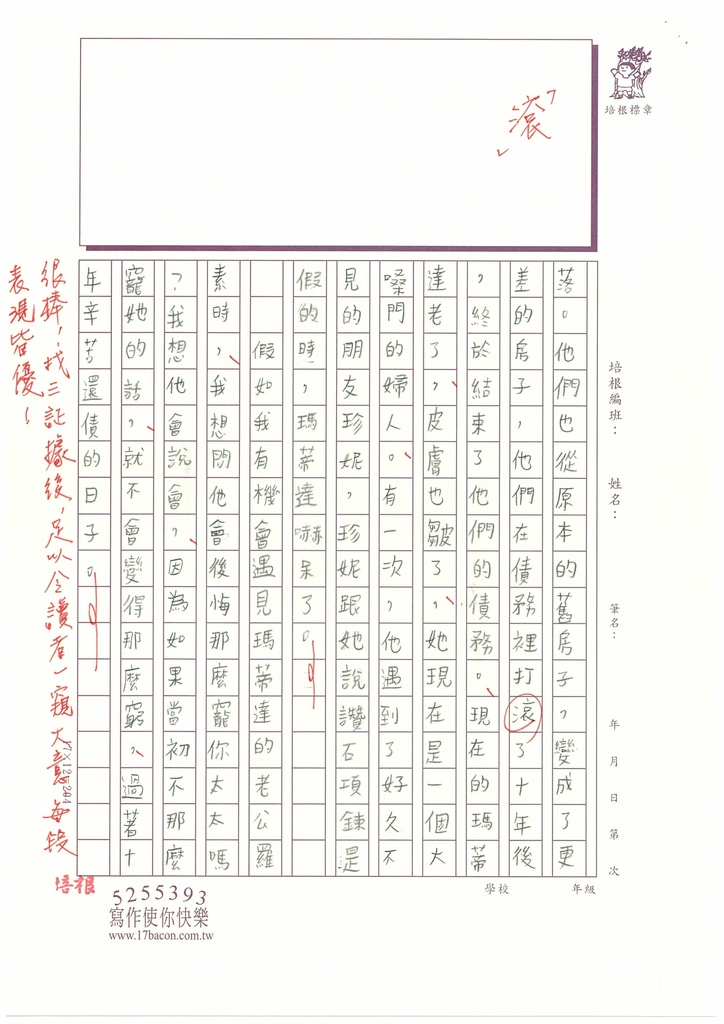 滾
培根標章
培根編班：
姓名：
筆名：
年 月 日 第 次
落。他們也從原本的舊房子，變成了更
差的房子，他們在債務裡打滾了十年後
，終於結束了他們的債務。現在的瑪蒂
達老了，皮膚也皺了，她現在是一個大
嗓門的婦人。有一次，他遇到了好久不
見的朋友珍妮，珍妮跟她說讚石項鍊是
假的時，瑪蒂達嚇呆了。
假如我有機會遇見瑪蒂達的老公羅
素時，我想問他會後悔那麼寵你太太嗎
？我想他會說會，因為如果當初不那麼
寵她的話，就不會變得那麼窮，過著十
年辛苦還債的日子。
很棒！找三証據後，足以令讀者一窺大意每段
表現皆優！
培根
5255393
寫作使你快樂
www.17bacon.com.tw
學校
年級